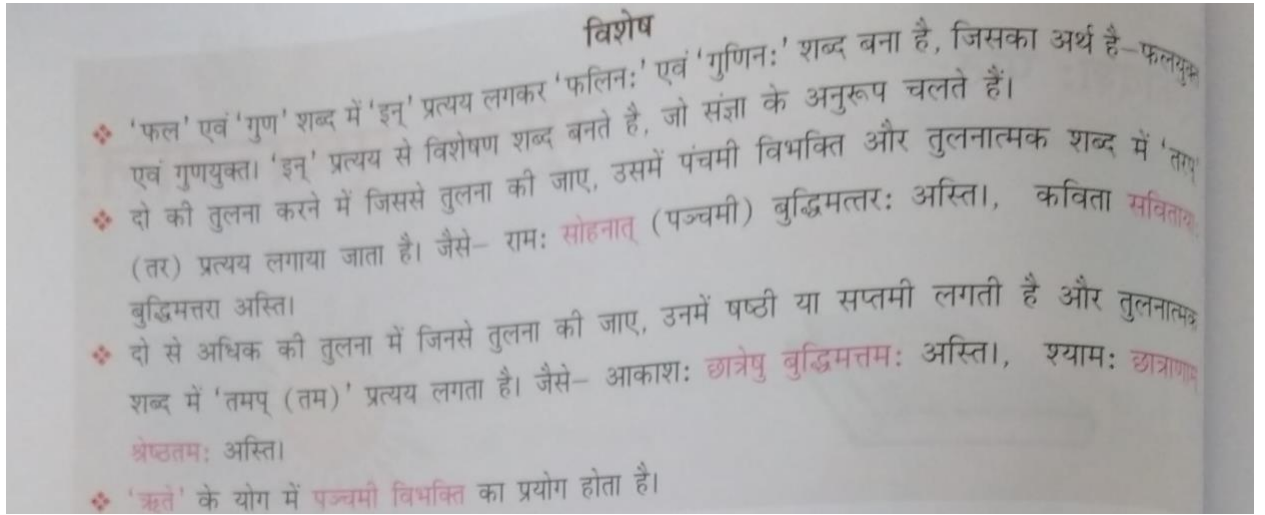 विशेष
❖ 'फल' एवं 'गुण' शब्द में 'इन्' प्रत्यय लगकर 'फलिनः' एवं 'गुणिनः' शब्द बना है, जिसका अर्थ है–फलयुक्त
एवं गुणयुक्त। 'इन्' प्रत्यय से विशेषण शब्द बनते है, जो संज्ञा के अनुरूप चलते हैं।
❖ दो की तुलना करने में जिससे तुलना की जाए, उसमें पंचमी विभक्ति और तुलनात्मक शब्द में 'तरप्'
(तर) प्रत्यय लगाया जाता है। जैसे– रामः सोहनात् (पञ्चमी) बुद्धिमत्तरः अस्ति।, कविता सवितायाः
बुद्धिमत्तरा अस्ति।
❖ दो से अधिक की तुलना में जिनसे तुलना की जाए, उनमें षष्ठी या सप्तमी लगती है और तुलनात्मक
शब्द में 'तमप् (तम)' प्रत्यय लगता है। जैसे– आकाशः छात्रेषु बुद्धिमत्तमः अस्ति।, श्यामः छात्राणाम्
श्रेष्ठतमः अस्ति।
❖ 'ऋते' के योग में पञ्चमी विभक्ति का प्रयोग होता है।